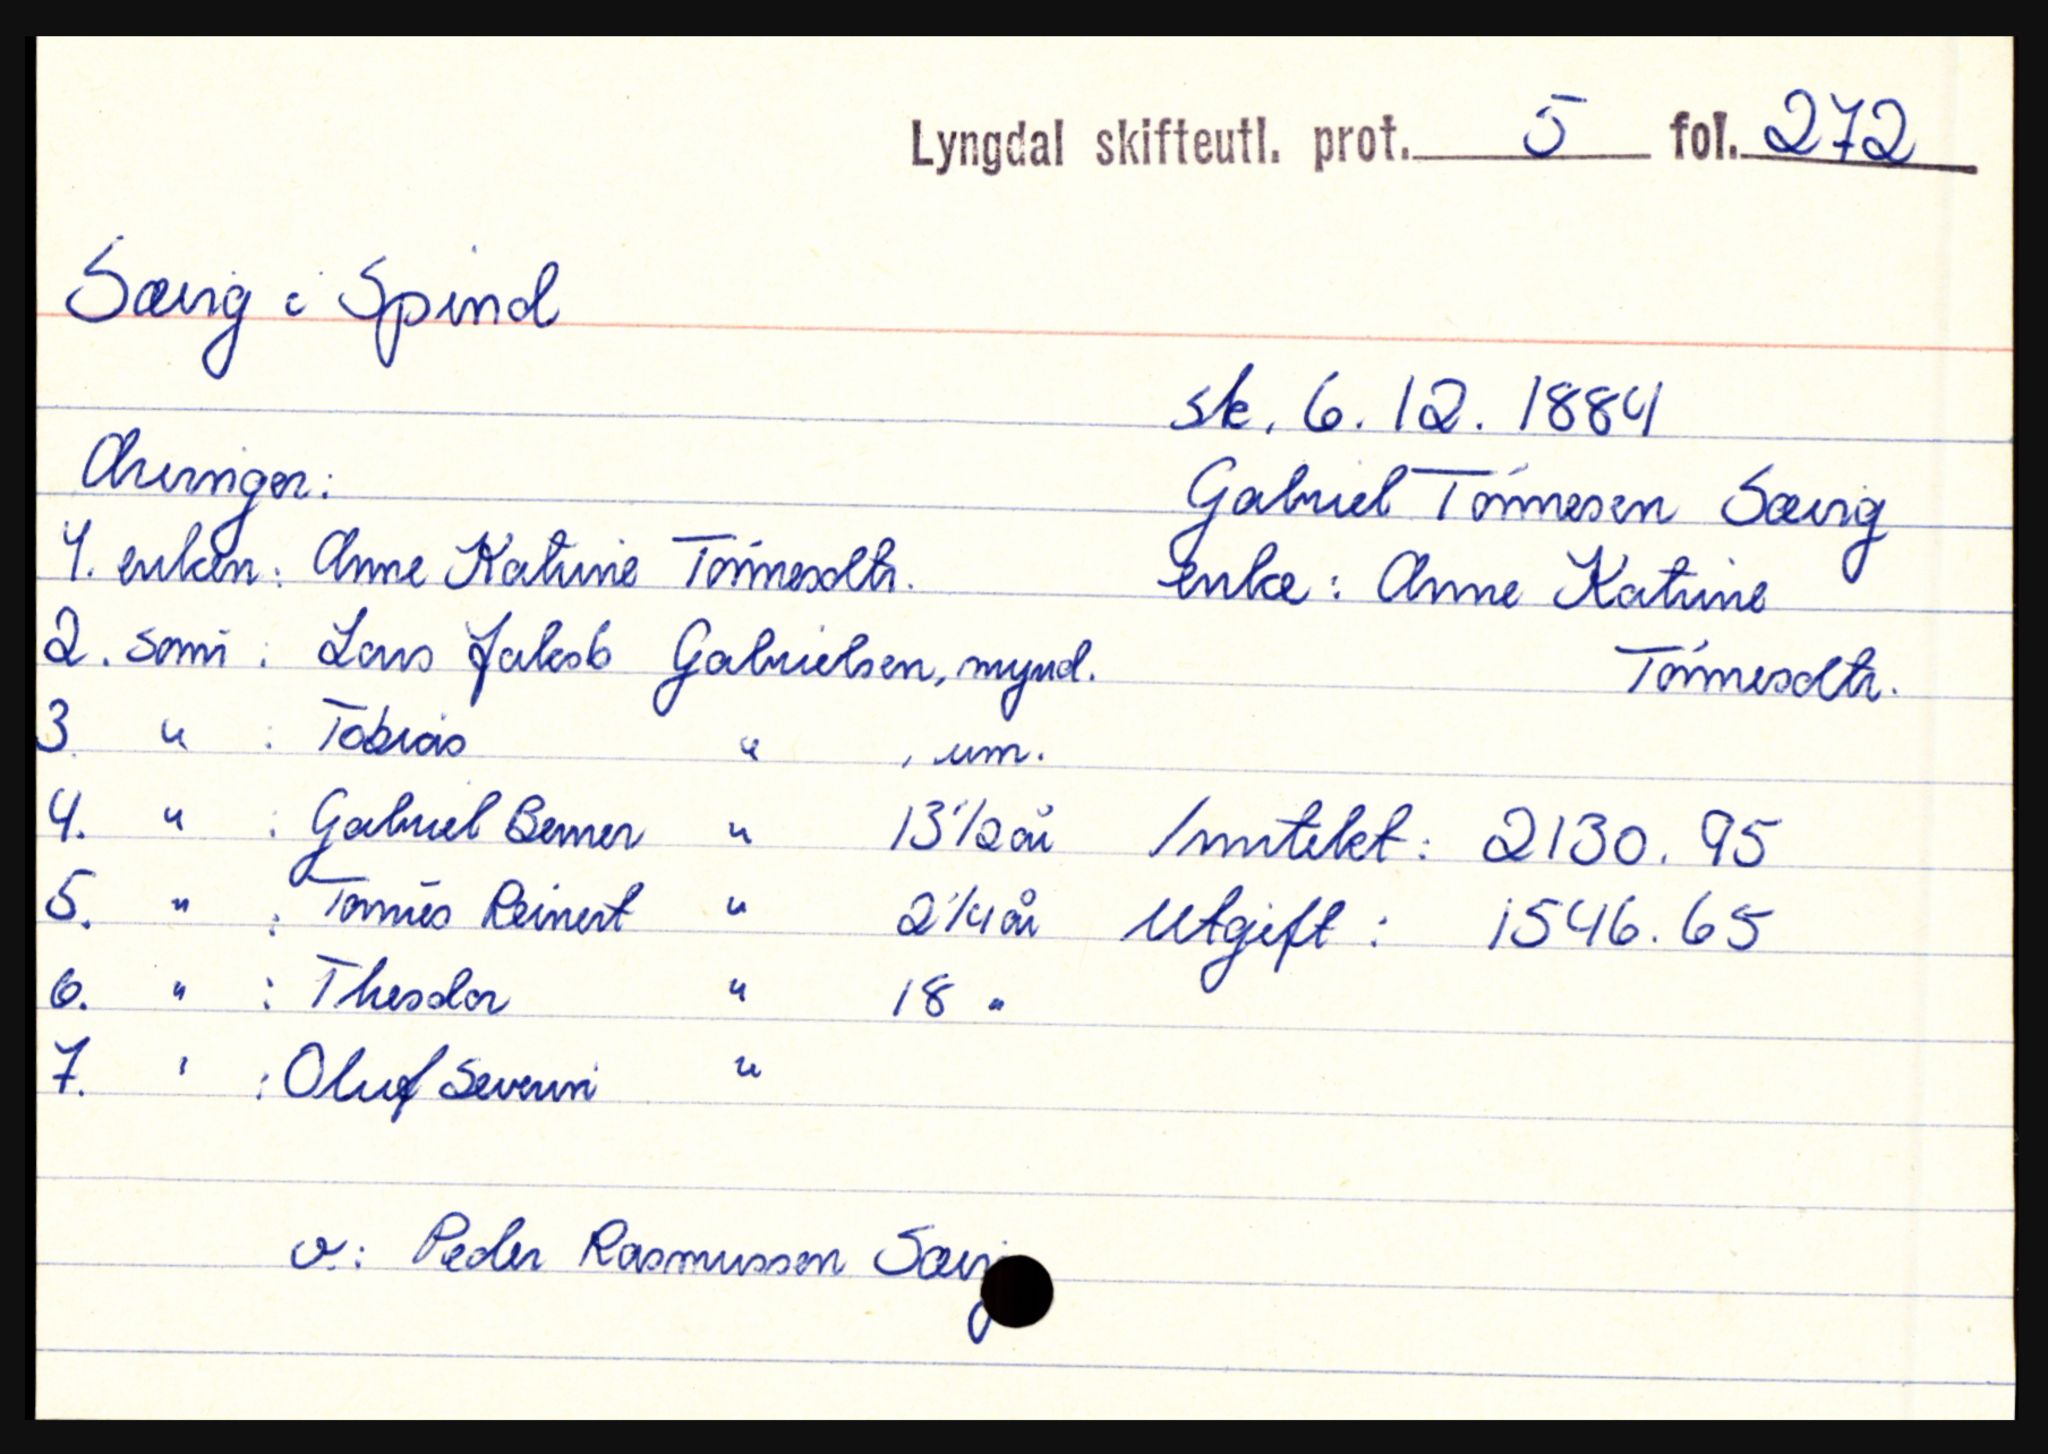 Lyngdal skifteutl. prot. 5 fol. 272
Sævig i Spind
sk. 6.12.1884
Arvinger:
Gabriel Tønnesen Sævig
1. enken: Anne Katrine Tønnesdtr.
enke: Anne Katrine
2. sønn: Lars Jakob Gabrielsen, mynd.
Tønnesdtr.
3. " : Tobias " , um.
4. " : Gabriel Berner " 13 1/2 år
Inntekt: 2130.95
5. " : Tønnes Reinert " 2 1/4 år
Utgift: 1546.65
6. " : Theodor " 18 "
7. " : Oluf Severin "
v.: Peder Rasmussen Sævig